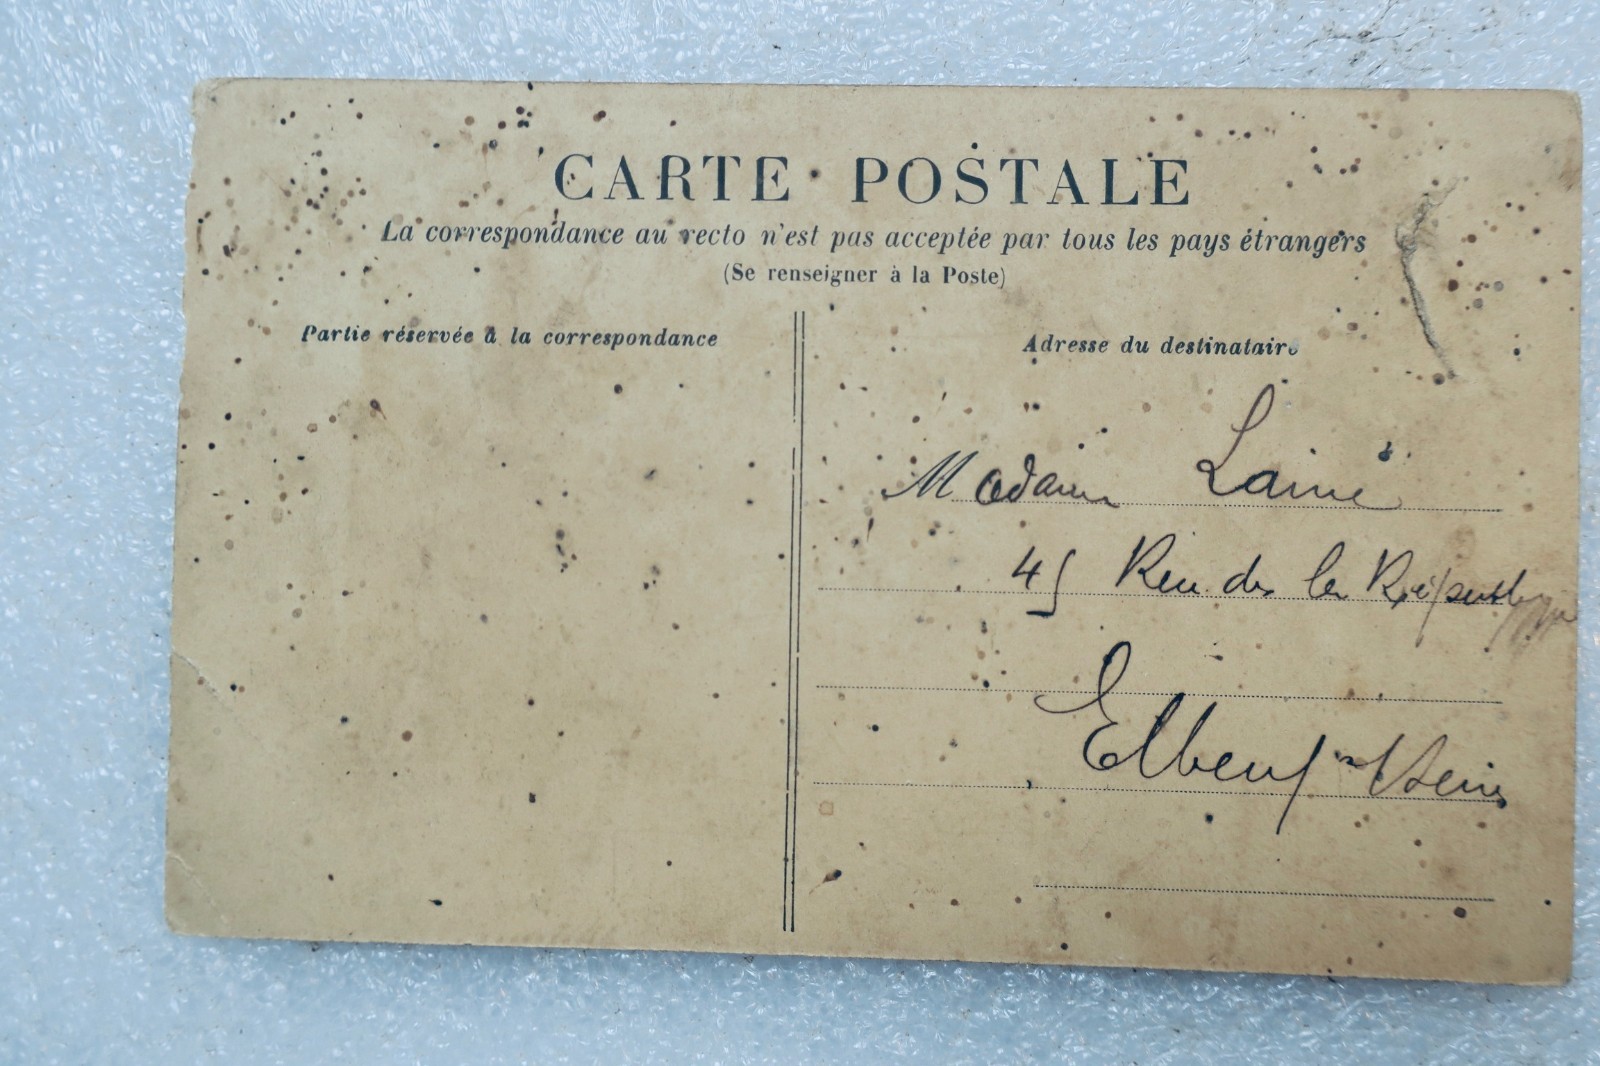 CARTE POSTALE
La correspondance au recto n'est pas acceptée par tous les pays étrangers
(Se renseigner à la Poste)
Partie réservée à la correspondance
Adresse du destinataire
Madame Lainé
45 Rue de la
Elbeuf s/Seine